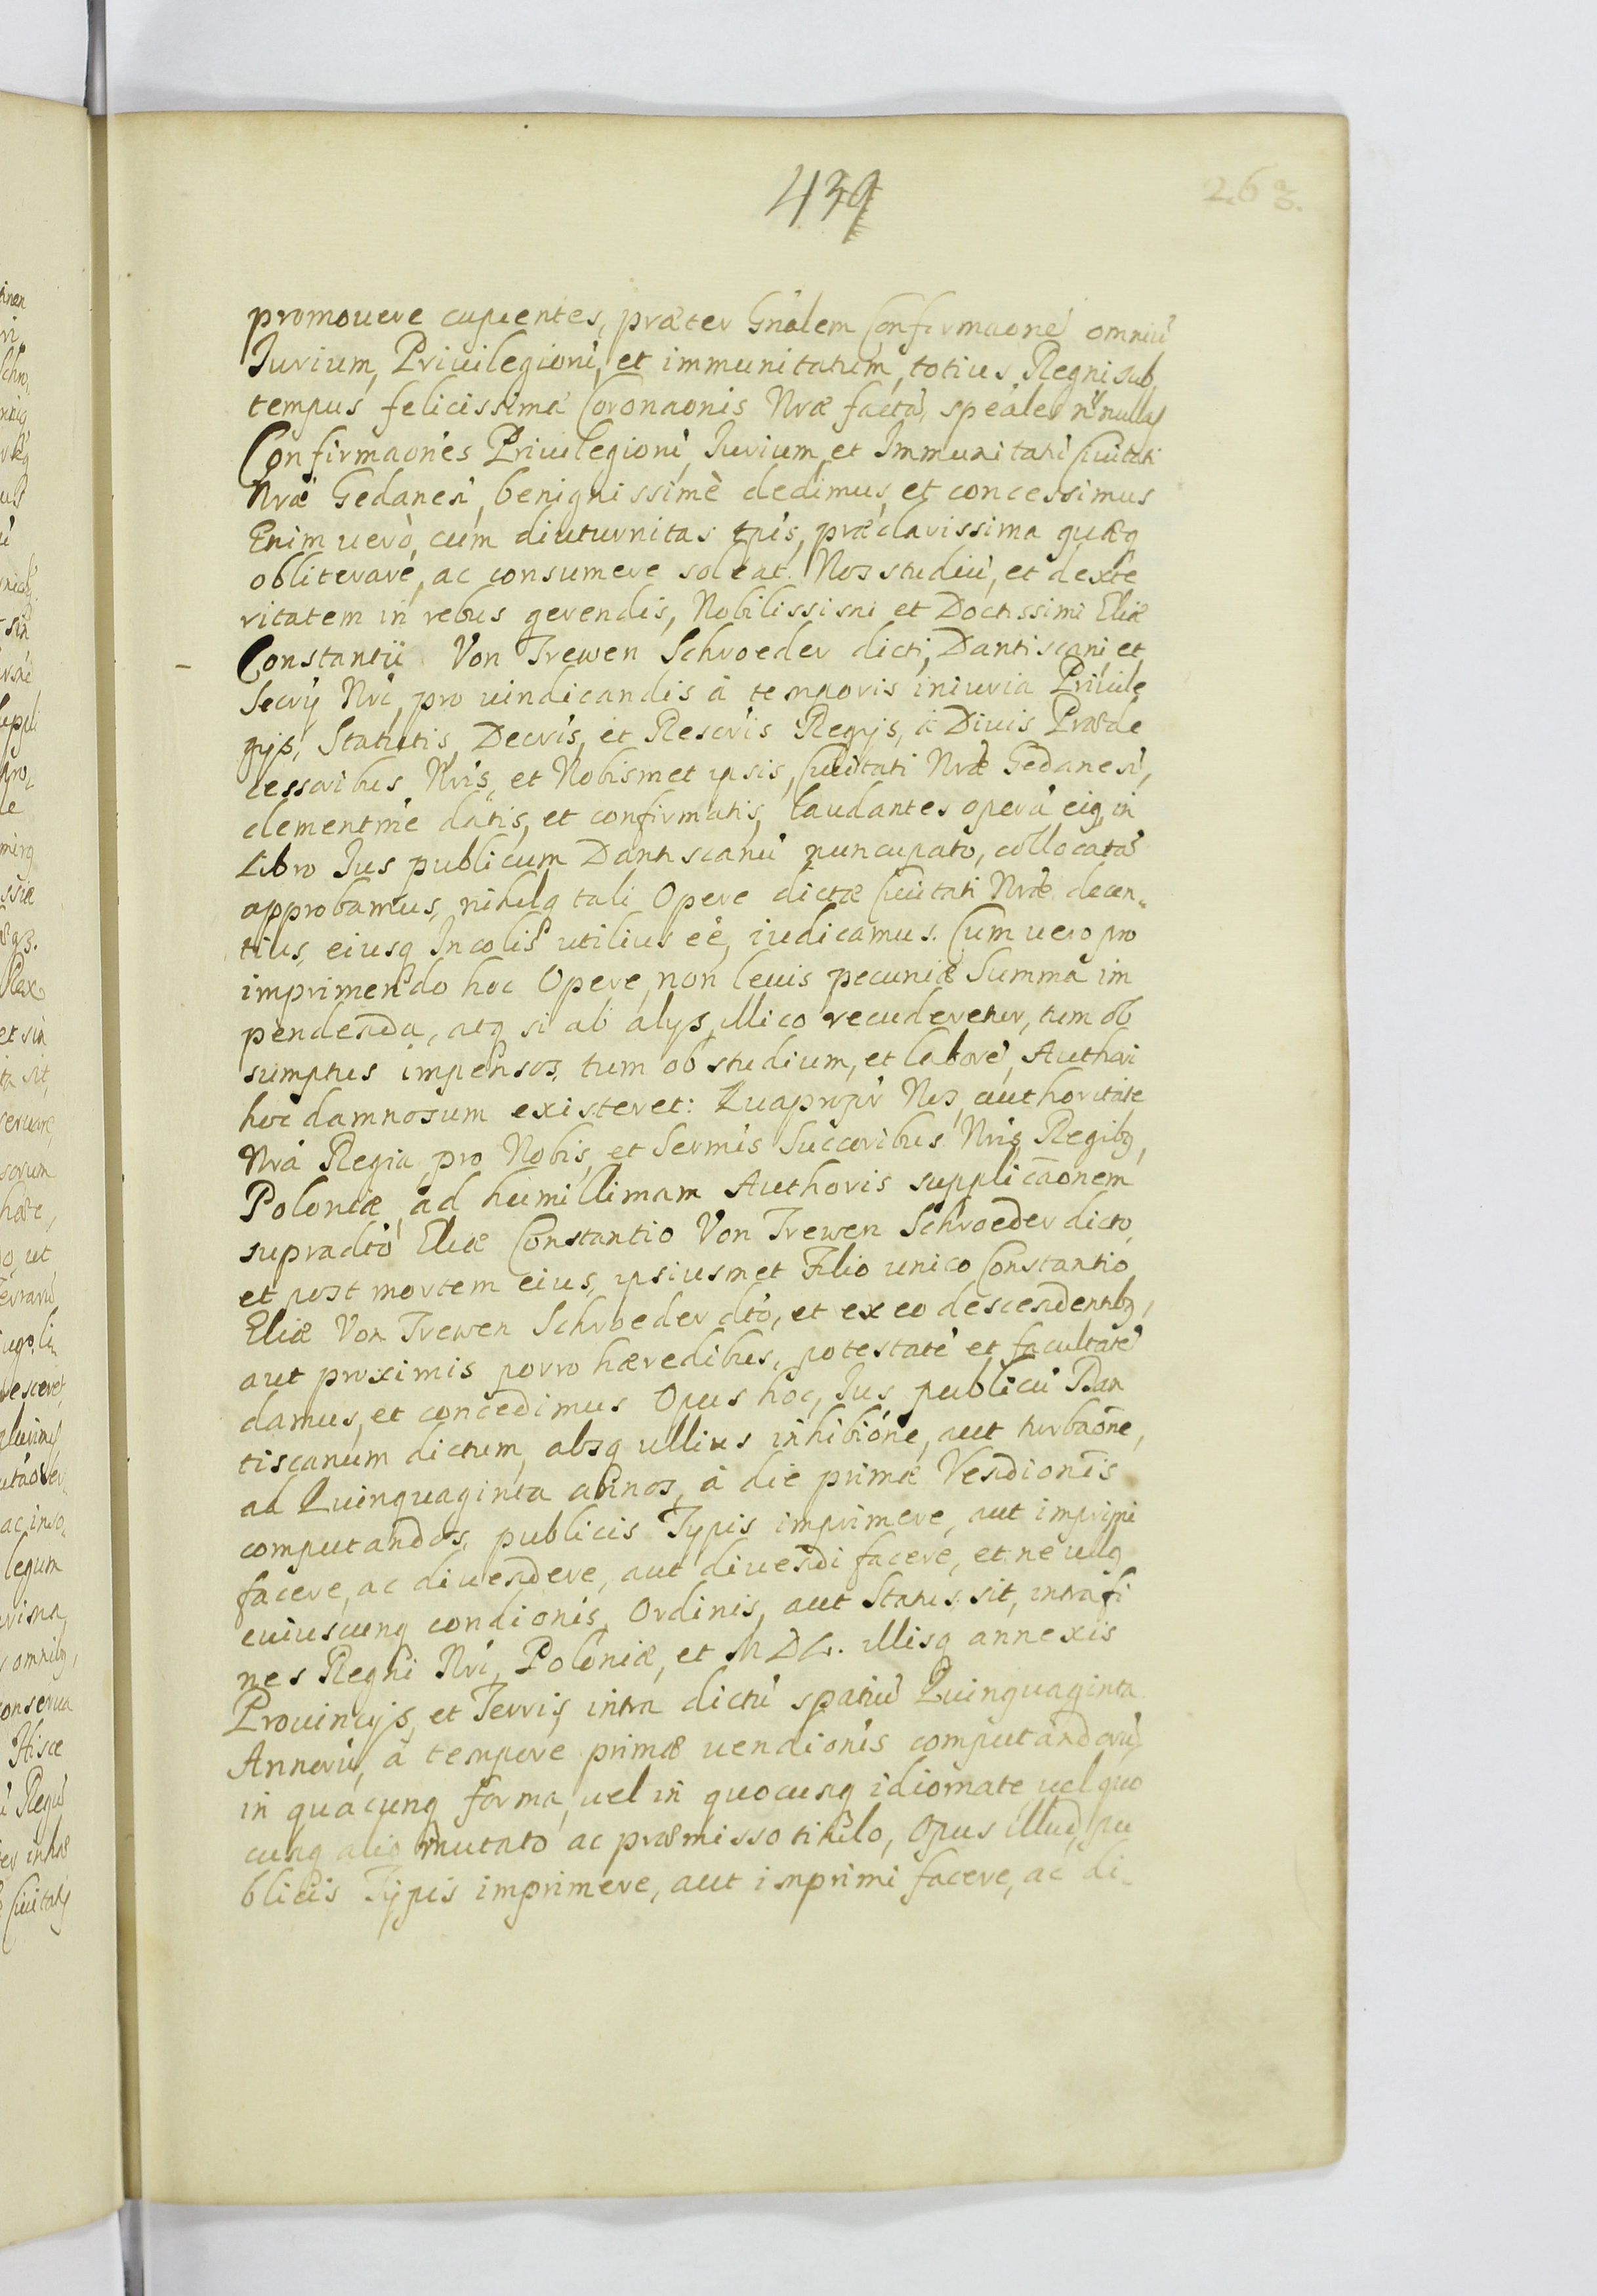 439
263.
promouere cupientes, præter Gnälem Confirmaoné omniũ
Jurium, Priuilegiorũ, et immunitatum, totius Regni sub
tempus felicissimæ Coronaonis Nræ factã, speãles nñnullas
Confirmaones Priuilegiorũ, Jurium et Immunitatũ Ciuitati
Nræ Gedanesi, benignissimè dedimus, et concessimus
Enim uerò, cum diuturnitas tpis, præclarissima quæq
obliterare, ac consumere soleat. Nos studiũ, et dexte
ritatem in rebus gerendis, Nobilissimi et Doctissimi Eliæ
– Constantii Von Trewen Schroeder dicti, Dantiscani, et
Secrij Nri, pro uindicandis à temporis iniuria Priuile
gijs, Statutis, Decris, et Rescris Regijs, à Diuis Præde
cessoribus Nris, et Nobismet ipsis, Ciuitati Nræ Gedanesi,
clementrñe datis, et confirmatis, laudantes operã eiq, in
Libro Jus publicum Dantiscanũ nuncupato, collocatã
approbamus, nihilq tali Opere dictæ Ciuitati Nræ decen„
tius, eiusq Incolis utilius eé, iudicamus. Cum uero pro
imprimendo hoc Opere, non leuis pecuniæ Summa im
pendenda, atq si ab alijs illico recuderetur, tum ob
sumptus impensos, tum ob studium, et laborẽ, Authori
hoc damnosum existeret: Quapropr Nos, authoritate
Nrã Regia pro Nobis, et Sermis Succoribus Nris, Regibq,
Poloniæ, ad humillimam Authoris supplicāonem
supradto Eliæ Constantio Von Trewen Schroeder dicto,
et post mortem eius, ipsiusmet Filio unico Constantio
Eliæ Von Trewen Schroeder dto, et ex eo descendentibq,
aut proximis porro hæredibus, potestatẽ et facultatẽ
damus, et concedimus Opus hoc, Jus publicũ Dan
tiscanum dictum, absq ullius inhibióne, aut turbaōne,
ad Quinquaginta annos, à die primæ Vendionis
computandos, publicis Typis imprimere, aut imprimi
facere, ac diuendere, aut diuendi facere, et ne ullq
cuiuscunq condionis, Ordinis, aut Status sit, intra fi
nes Regni Nri, Poloniæ, et M D L. illisq annexis
Prouincijs, et Terris, intra dictũ spatiũ Quinquaginta
Annorũ, à tempore primæ uendionis computandorũ,
in quacunq forma, uel in quocunq idiomate, uel quo
cunq alio mutato ac præmisso titulo, Opus illud, pu
blicis Typis imprimere, aut imprimi facere, ac di„